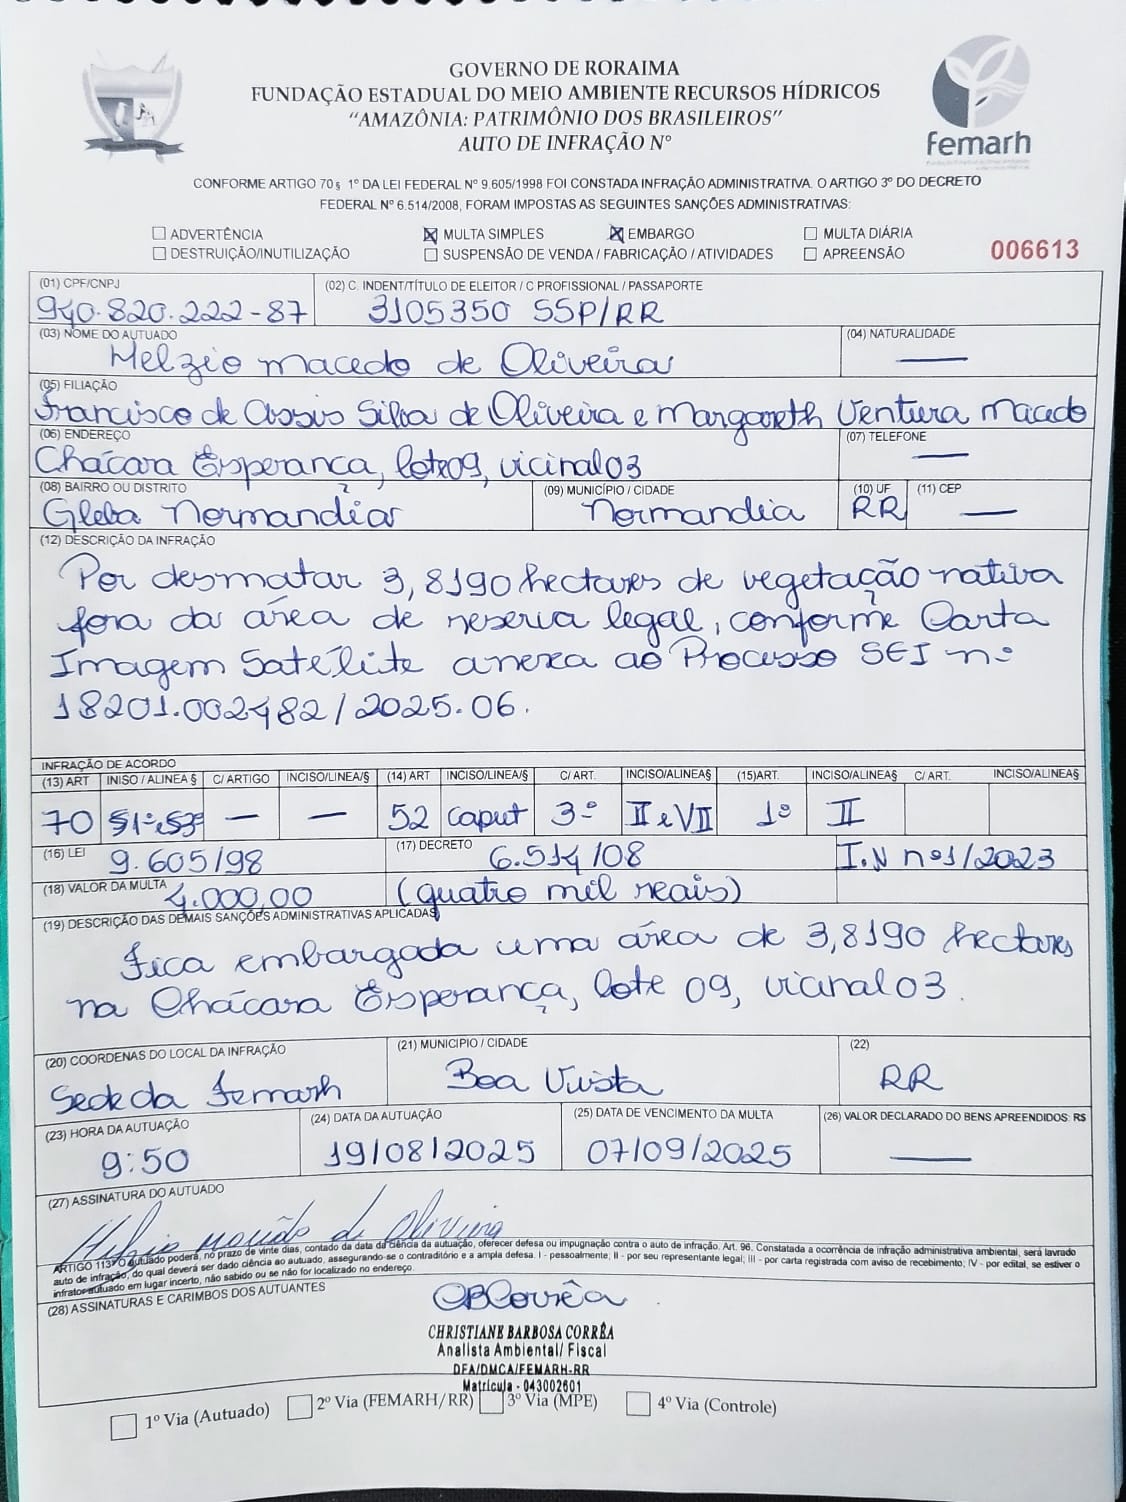 GOVERNO DE RORAIMA
FUNDAÇÃO ESTADUAL DO MEIO AMBIENTE RECURSOS HÍDRICOS
“AMAZÔNIA: PATRIMÔNIO DOS BRASILEIROS”
AUTO DE INFRAÇÃO Nº
femarh
CONFORME ARTIGO 70 § 1º DA LEI FEDERAL Nº 9.605/1998 FOI CONSTADA INFRAÇÃO ADMINISTRATIVA. O ARTIGO 3º DO DECRETO
FEDERAL Nº 6.514/2008, FORAM IMPOSTAS AS SEGUINTES SANÇÕES ADMINISTRATIVAS:
☐ ADVERTÊNCIA ☒ MULTA SIMPLES ☒ EMBARGO ☐ MULTA DIÁRIA
☐ DESTRUIÇÃO/INUTILIZAÇÃO ☐ SUSPENSÃO DE VENDA / FABRICAÇÃO / ATIVIDADES ☐ APREENSÃO 006613
(01) CPF/CNPJ (02) C. INDENT/TÍTULO DE ELEITOR / C PROFISSIONAL / PASSAPORTE
940.820.222-87 3105350 SSP/RR
(03) NOME DO AUTUADO (04) NATURALIDADE
Helzio macedo de Oliveira —
(05) FILIAÇÃO
Francisco de Assis Silva de Oliveira e Margareth Ventura Macedo
(06) ENDEREÇO (07) TELEFONE
Chácara Esperança, lote 09, vicinal 03 —
(08) BAIRRO OU DISTRITO (09) MUNICÍPIO / CIDADE (10) UF (11) CEP
Gleba Normandia Normandia RR —
(12) DESCRIÇÃO DA INFRAÇÃO
Por desmatar 3,8190 hectares de vegetação nativa
fora da área de reserva legal, conforme Carta
Imagem Satélite anexa ao Processo SEI nº
18201.002482/2025.06.
INFRAÇÃO DE ACORDO
(13) ART INISO / ALINEA § C/ ARTIGO INCISO/LINEA/§ (14) ART INCISO/LINEA/§ C/ ART. INCISO/ALINEA§ (15)ART. INCISO/ALINEA§ C/ ART. INCISO/ALINEA§
70 §1º e §3º — — 52 caput 3º II e VII 1º II
(16) LEI 9.605/98 (17) DECRETO 6.514/08 I.N nº1/2023
(18) VALOR DA MULTA 4.000,00 (quatro mil reais)
(19) DESCRIÇÃO DAS DEMAIS SANÇÕES ADMINISTRATIVAS APLICADAS
Fica embargada uma área de 3,8190 hectares
na Chácara Esperança, lote 09, vicinal 03.
(20) COORDENAS DO LOCAL DA INFRAÇÃO (21) MUNICIPIO / CIDADE (22)
Sede da Femarh Boa Vista RR
(23) HORA DA AUTUAÇÃO (24) DATA DA AUTUAÇÃO (25) DATA DE VENCIMENTO DA MULTA (26) VALOR DECLARADO DO BENS APREENDIDOS: R$
9:50 19/08/2025 07/09/2025 —
(27) ASSINATURA DO AUTUADO
Helzio macêdo de Oliveira
ARTIGO 113º O autuado poderá, no prazo de vinte dias, contado da data da ciência da autuação, oferecer defesa ou impugnação contra o auto de infração. Art. 96. Constatada a ocorrência de infração administrativa ambiental, será lavrado
auto de infração, do qual deverá ser dado ciência ao autuado, assegurando-se o contraditório e a ampla defesa. I - pessoalmente; II - por seu representante legal; III - por carta registrada com aviso de recebimento; IV - por edital, se estiver o
infrator autuado em lugar incerto, não sabido ou se não for localizado no endereço.
(28) ASSINATURAS E CARIMBOS DOS AUTUANTES
CBCorrêa
CHRISTIANE BARBOSA CORRÊA
Analista Ambiental/ Fiscal
DFA/DMCA/FEMARH-RR
Matrícula - 043002601
☐ 1º Via (Autuado) ☐ 2º Via (FEMARH/RR) ☐ 3º Via (MPE) ☐ 4º Via (Controle)